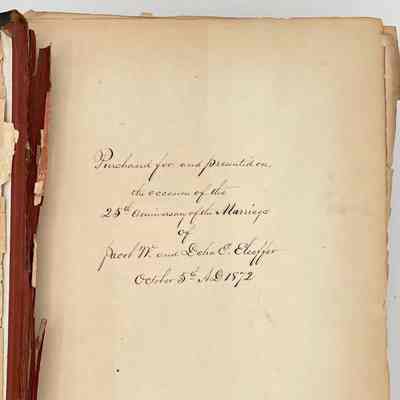 Purchased for and presented on
the occasion of the
25th Anniversary of the Marriage
of
Jacob W. and Delia E.
October 5th A.D 1872